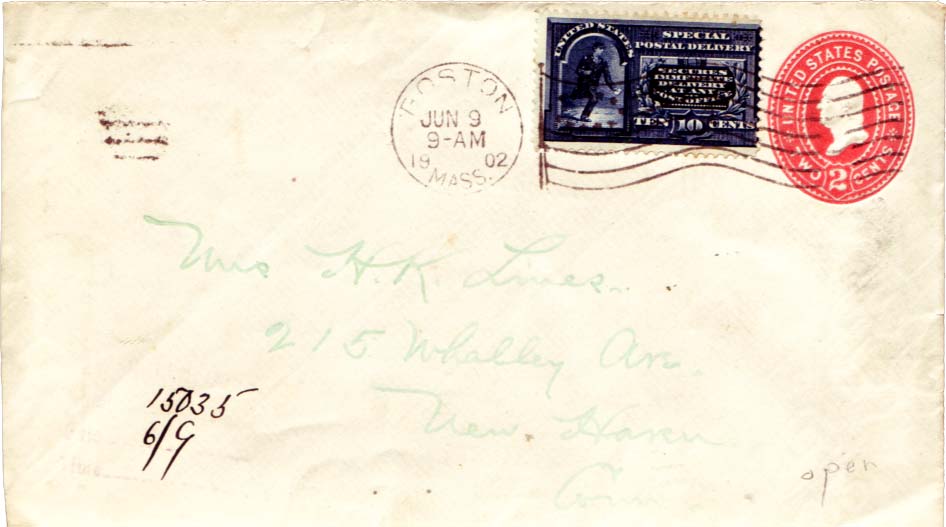 UNITED STATES
SPECIAL
POSTAL DELIVERY
SECURES
IMMEDIATE
DELIVERY
AT ANY
POST OFFICE
TEN 10 CENTS
UNITED STATES POSTAGE
TWO 2 CENTS
BOSTON
JUN 9
9-AM
19 02
MASS.
Mrs H. K. Lines.
215 Whalley Ave.
New Haven
Conn
15035
6/9
open